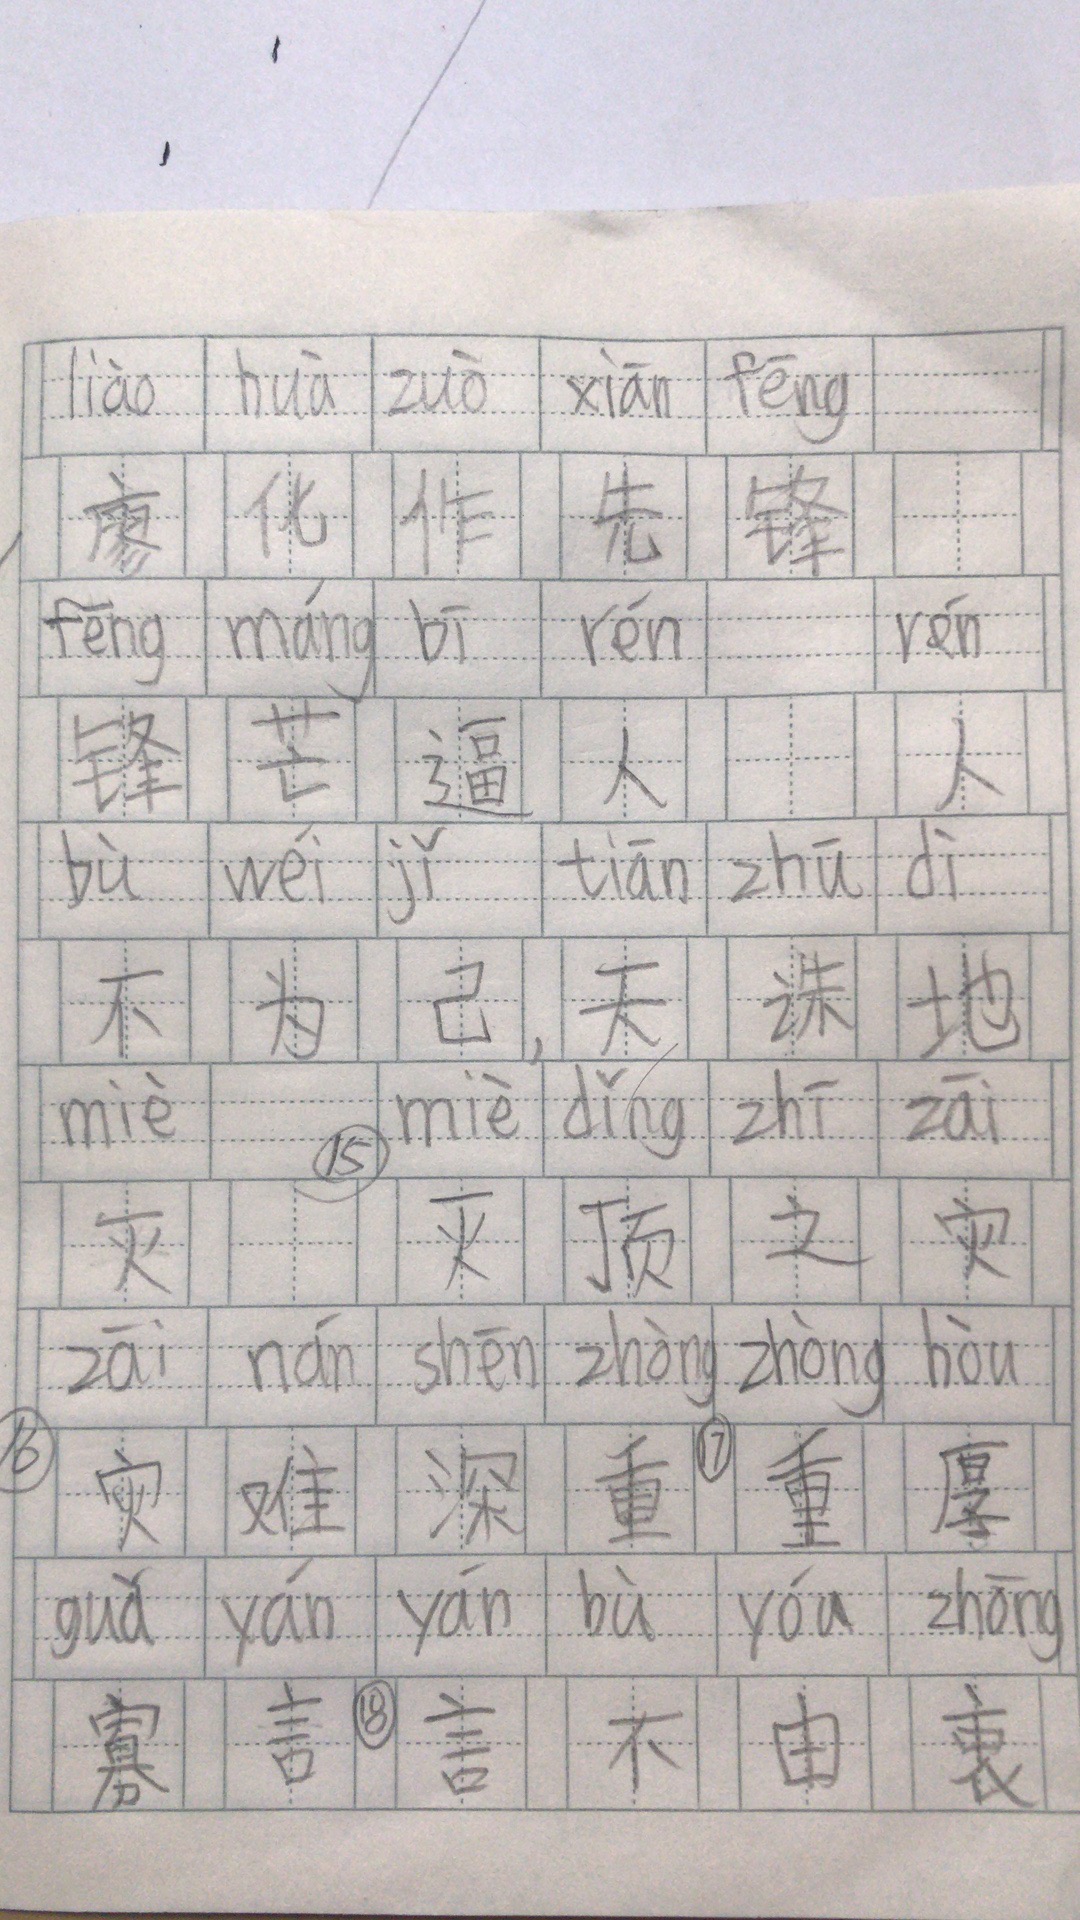 liào huà zuò xiān fēng
廖化作先锋
fēng máng bī rén rén
锋芒逼人 人
bù wéi jǐ tiān zhū dì
不为己,天诛地
miè ⑮ miè dǐng zhī zāi
灭 灭顶之灾
zāi nán shēn zhòng zhòng hòu
⑯ 灾难深重 ⑰ 重厚
guǎ yán yán bù yóu zhōng
寡言 ⑱ 言不由衷